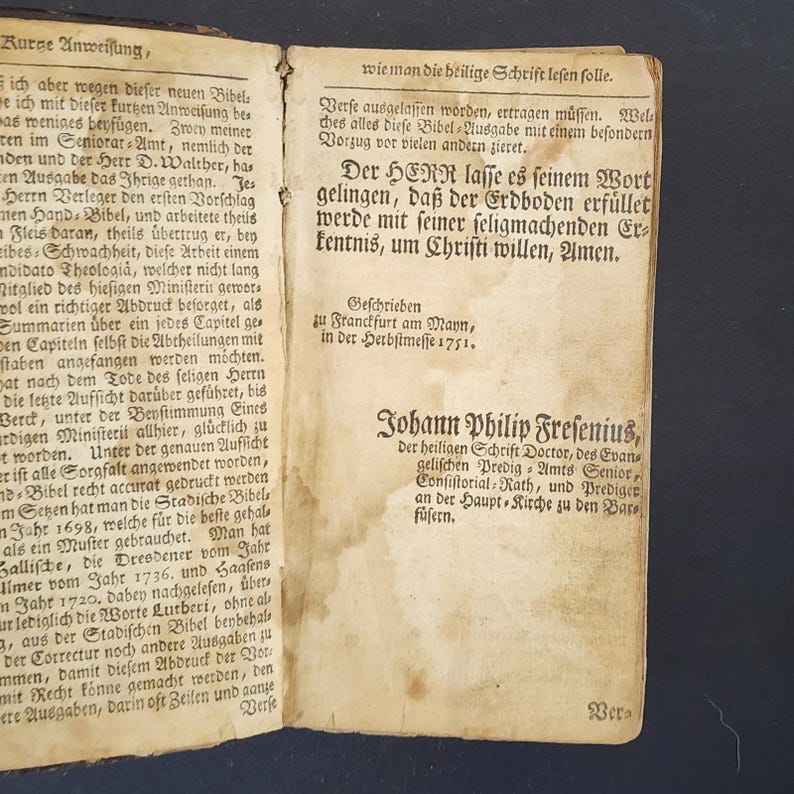 Kurtze Anweisung,
ich aber wegen dieser neuen Bibel-
e ich mit dieser kurtzen Anweisung be-
as weniges beyfügen. Zwey meiner
ren im Seniorat-Amt, nemlich der
nden und der Herr D. Walther, ha-
ten Ausgabe das Ihrige gethan. Je-
Herrn Verleger den ersten Vorschlag
men Hand-Bibel, und arbeitete theils
n Fleis daran, theils übertrug er, bey
eibes-Schwachheit, diese Arbeit einem
andidato Theologiä, welcher nicht lang
Mitglied des hiesigen Ministerii gewor-
wol ein richtiger Abdruck besorget, als
Summarien über ein jedes Capitel ge-
den Capiteln selbst die Abtheilungen mit
staben angefangen werden möchten.
hat nach dem Tode des seligen Herrn
die letzte Aufsicht darüber geführet, bis
Werck, unter der Beystimmung Eines
rdigen Ministerii allhier, glücklich zu
t worden. Unter der genauen Aufsicht
er ist alle Sorgfalt angewendet worden,
nd-Bibel recht accurat gedruckt werden
m Setzen hat man die Stadische Bibel-
n Jahr 1698, welche für die beste gehal-
als ein Muster gebrauchet. Man hat
Hallische, die Dresdener vom Jahr
Ulmer vom Jahr 1736. und Haasens
n Jahr 1720. dabey nachgelesen, über-
ur lediglich die Worte Lutheri, ohne al-
g, aus der Stadischen Bibel beybehal-
der Correctur noch andere Ausgaben zu
mmen, damit diesem Abdruck der Vor-
mit Recht könne gemacht werden, den
ere Ausgaben, darin oft Zeilen und gantze
Verse
wie man die heilige Schrift lesen solle.
Verse ausgelassen worden, ertragen müssen. Wel-
ches alles diese Bibel-Ausgabe mit einem besondern
Vorzug vor vielen andern zieret.
Der HERR lasse es seinem Wort
gelingen, daß der Erdboden erfüllet
werde mit seiner seligmachenden Er-
kentnis, um Christi willen, Amen.
Geschrieben
zu Franckfurt am Mayn,
in der Herbstmesse 1751.
Johann Philip Fresenius,
der heiligen Schrift Doctor, des Evan-
gelischen Predig-Amts Senior,
Consistorial-Rath, und Prediger
an der Haupt-Kirche zu den Bar-
füsern.
Ver-